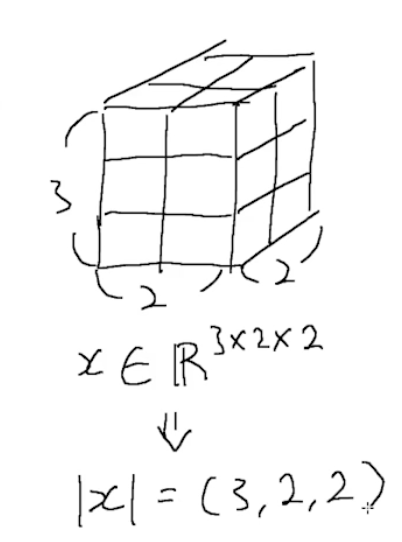 3
2
2
x ∈ ℝ^{3×2×2}
⇓
|x| = (3, 2, 2)